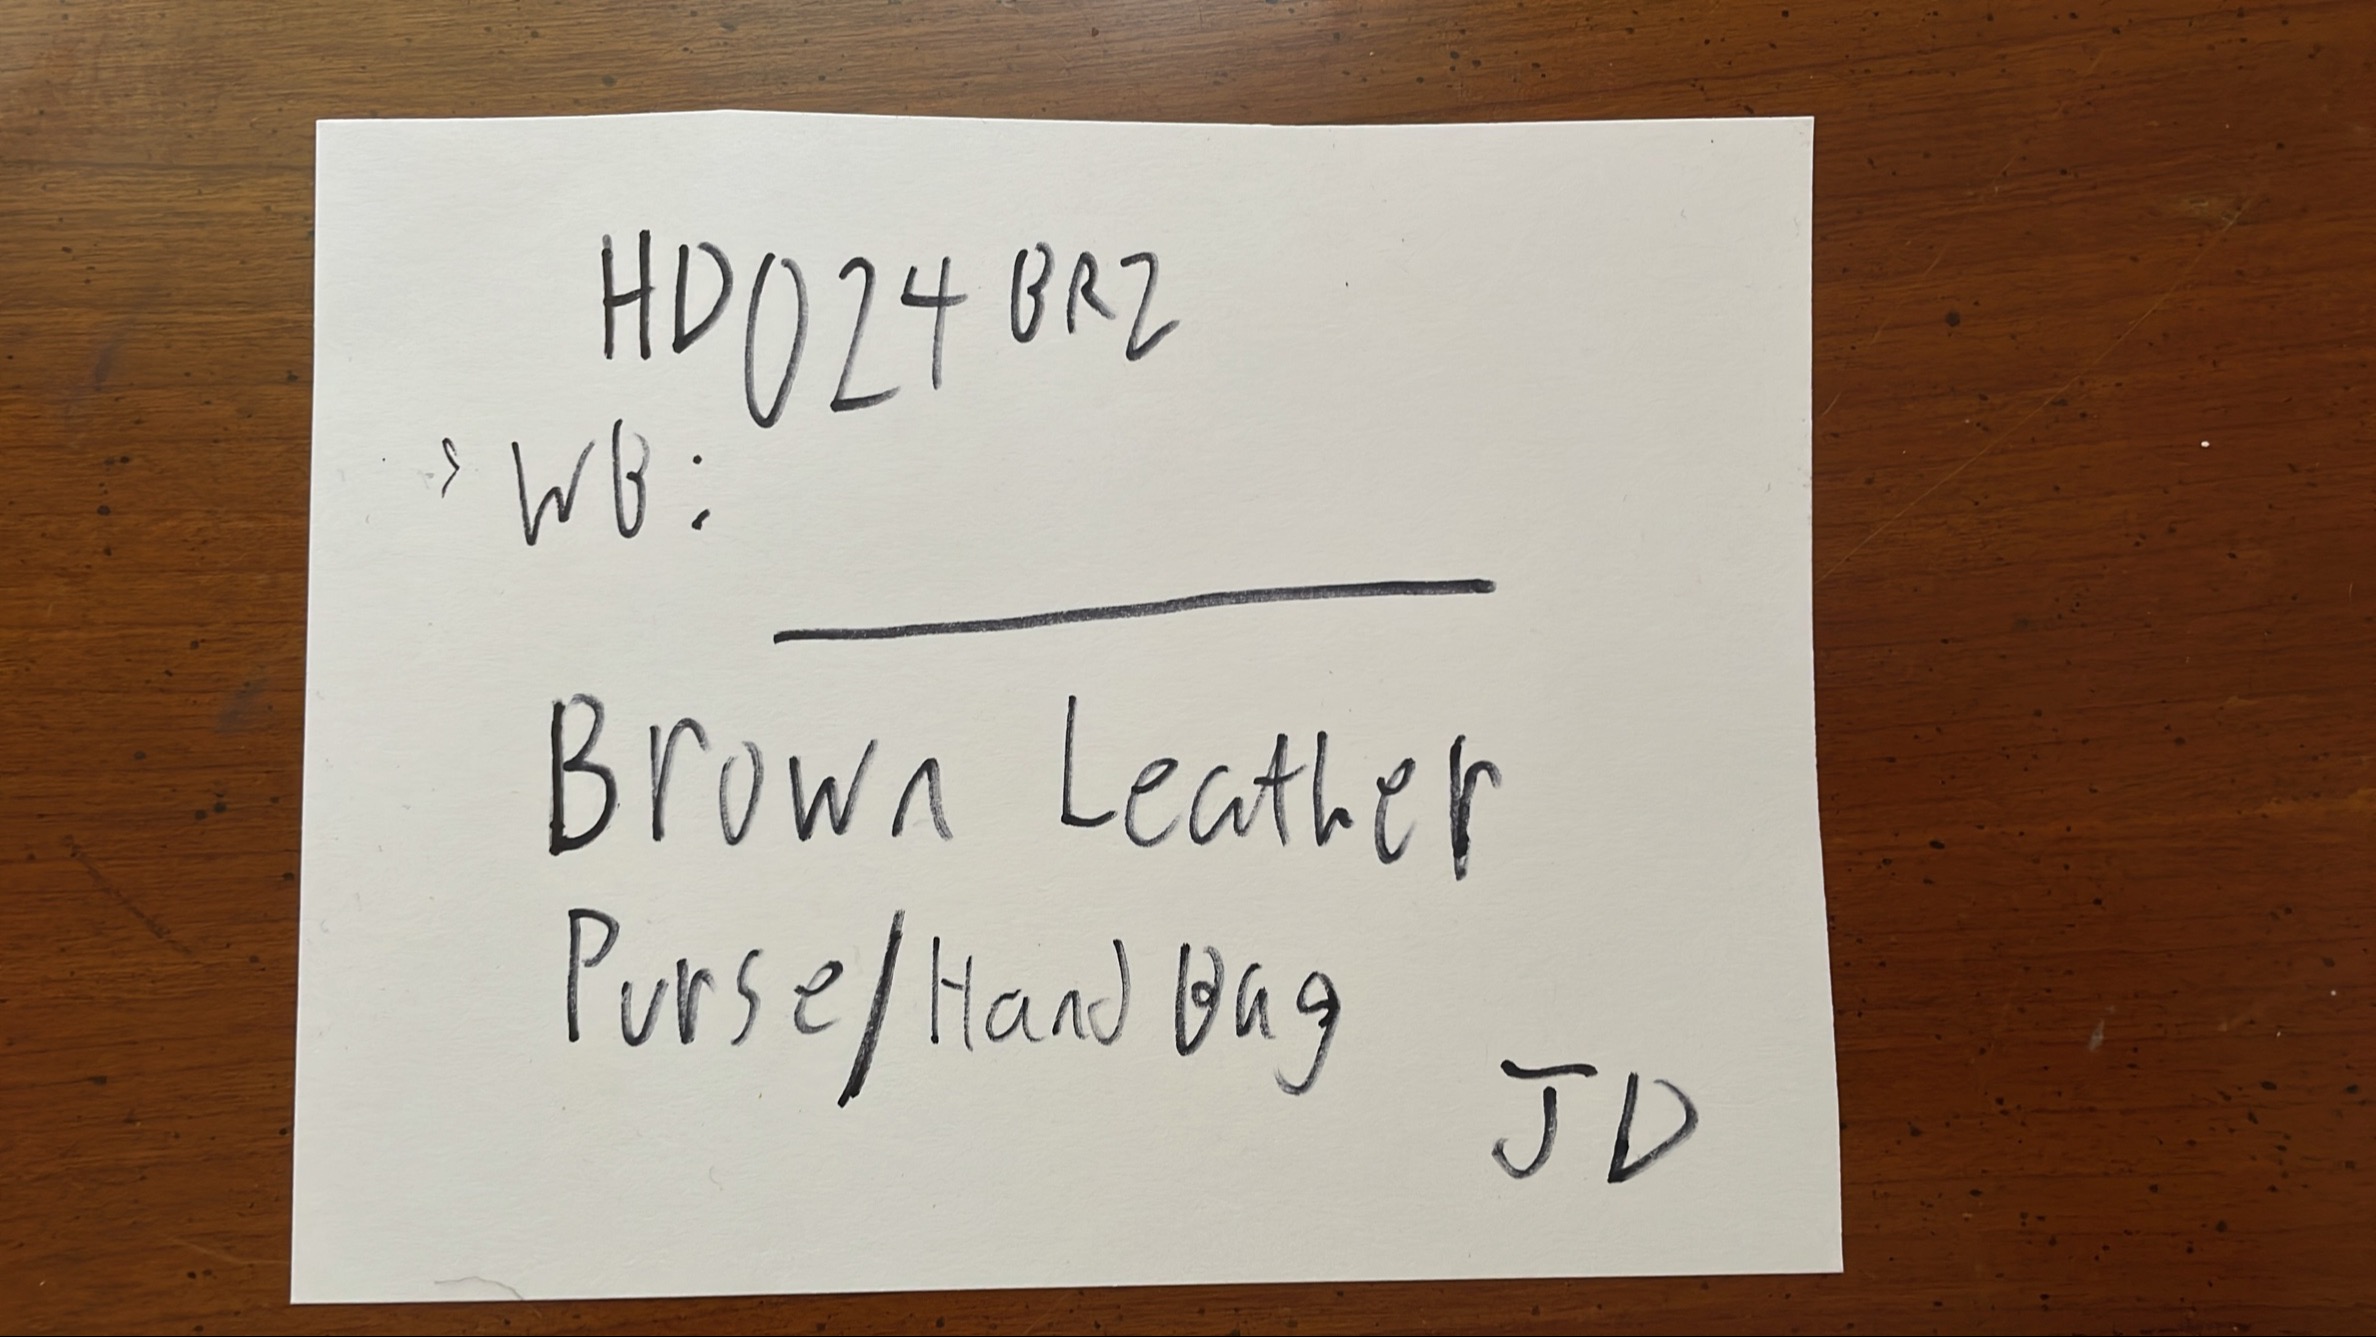 HD024 BRZ
> WB:
Brown Leather
Purse/Hand Bag
JD